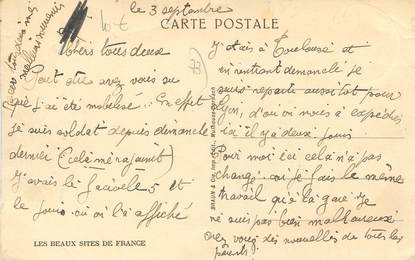 le 3 septembre
CARTE POSTALE
10 €
73
chers tous deux
Peut être avez vous su
que j'ai été mobilisé.. En effet
je suis soldat depuis dimanche
dernier (cela me rajeunit)
j'avais le fascicule 5 et
le jour où on l'a affiché
LES BEAUX SITES DE FRANCE
j'étais à Toulouse et
en rentrant dimanche je
suis reparti aussitôt pour
d'où on nous a expédiés
ici il y a deux jours
Pour moi ici cela n'a pas
changé car je fais le même
travail qu'à la gare je
ne suis pas bien malheureux
avez vous des nouvelles de tous les
parents?